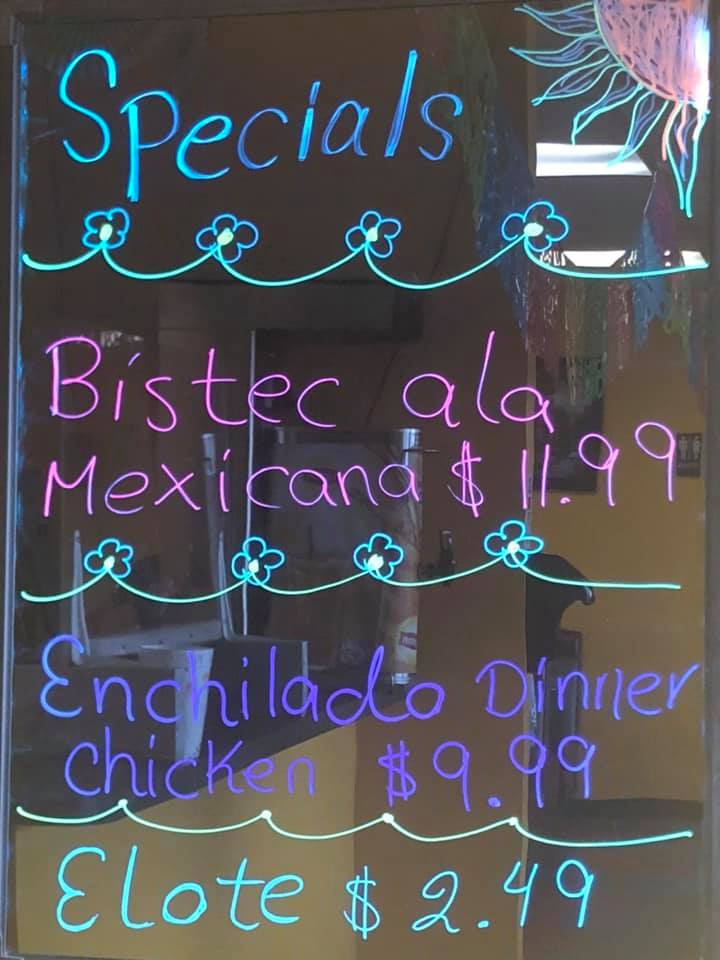 Specials
Bistec ala
Mexicana $ 11.99
Enchilado Dinner
Chicken $9.99
Elote $ 2.49